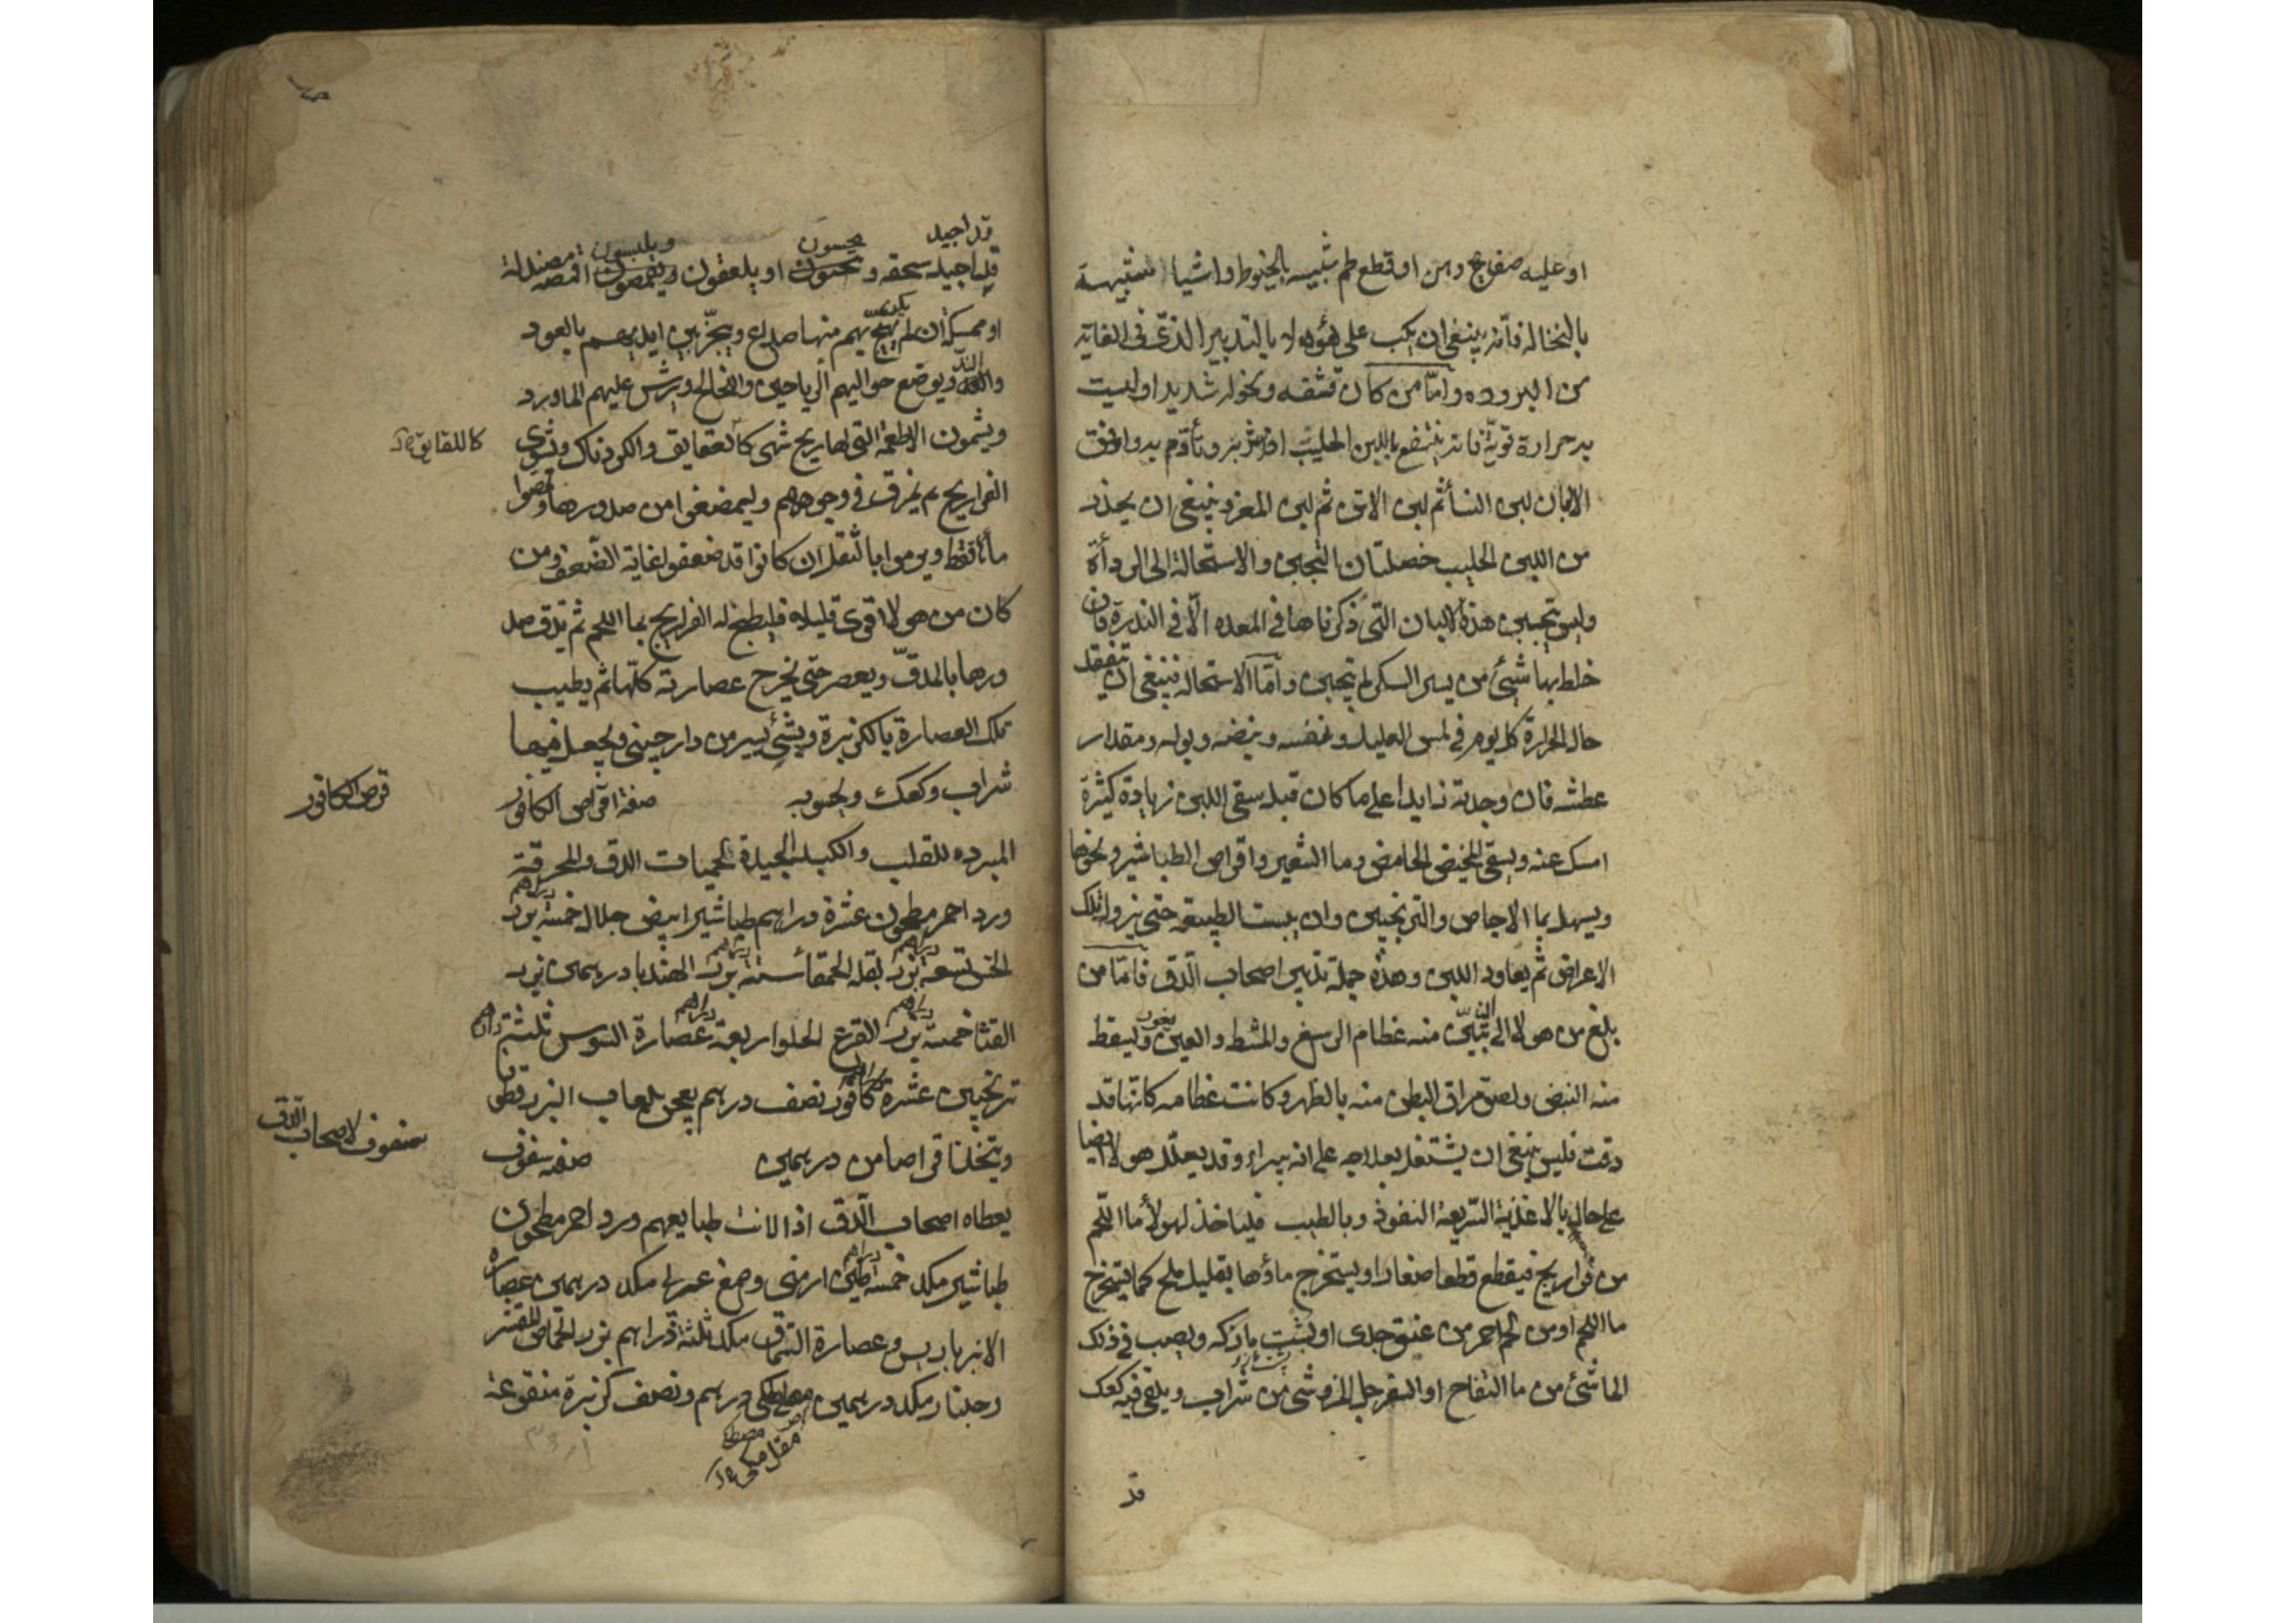 او عليه صفايح دهن او قطع لحم شبيه بالخيوط واشيا شبيهة
بالنخاله فانه ينبغى ان يكب على هؤلاء بالتدبير الذى فى الغاية
من البروده واما من كان قشفه ونحوله شديدا وليست
به حرارة قوية فانه ينتفع باللبن الحليب اذا شربه وتأدم به واوفق
الالبان لبن النسأ ثم لبن الاتن ثم لبن المعز وينبغى ان يحذر
من اللبن الحليب خصلتان التجبن والاستحالة الى الردأة
وليس تتجبن هذه الالبان التى ذكرناها فى المعده الا فى الندرة فان
خلط بها شيئ من يسير السكر لم يتجبن واما الاستحالة فينبغى ان يتفقد
حال الحرارة كل يوم فى لمس العليل وتنفسه ونبضه وبوله ومقدار
عطشه فان وجدته زايدا على ما كان قبل سقى اللبن زيادة كثيرة
امسك عنه ويسقى المخيض الحامض وما الشعير واقراص الطباشير ونحوها
ويسهل بما الاجاص والترنجبين وان يبست الطبيعة حتى يزول تلك
الاعراض ثم يعاود اللبن وهذه جملة تدبير اصحاب الدق فاما من
بلغ من هولا الى ان يتبين منه عظام الرسغ والمشط والعين يغور ويسقط
منه النبض ولصق مراق البطن منه بالظهر وكانت عظامه كانها قد
دقت فليس ينبغى ان يشتغل بعلاجه على انه يبرأ وقد يعلل هولا ايضا
على حال بالاغذية السريعة النفوذ وبالطيب فلياخذ لهولأ ما اللحم
من فراريج فيقطع قطعا صغارا ويستخرج ماؤها بقليل ملح كما يستخرج
ما اللحم او من لحم احمر من عنق جدى او بشت مازكه ويصب فى ذلك
الما شئ من ما التفاح او السفرجل المز وشى من شراب ويلقى فيه كعك
قد
قد اجيد يحسون ويلبسون
قد اجيد سحقه ويحسون او يلعقون ويقمصون اقمصه مصندلة
او ممسكة ان لم يهيج بهم منها صداع ويبخر بين ايديهم بالعود
والند ويوضع حواليهم الرياحين والخالخ ويرش عليهم الماورد
ويشمون الاطعمة التى لها ريح شهى كالقايق والكردناك وشوى
كاللقايق
الفراريج ثم يفرق فى وجوههم وليمضغوا من صدورها ويمصوا
مأها فقط ويرموا بالثفل ان كانوا قد ضعفو لغاية الضعف ومن
كان من هولا اقوى قليلا فليطبخ له الفراريج بما اللحم ثم تدق صد
ورها بالمدق ويعصر حتى يخرج عصارته كلها ثم يطيب
تلك العصارة بالكزبرة وبشئ يسير من دارجينى ويجعل فيها
شراب وكعك ويحسوه صفة اقراص الكافور
قرص الكافور
المبرده للقلب والكبد الجيدة لحميات الدق والمحرقة
ورد احمر مطحون عشرة دراهم طباشير ابيض حلال خمسة دراهم بزر
الخس تسعة دراهم بزر بقلة الحمقأ ستة دراهم بزر الهندبا درهمين بزر
القثا خمسة دراهم بزر القرع الحلو اربعة دراهم عصارة السوس ثلثة دراهم
ترنجبين عشرة دراهم كافور نصف درهم يعجن بلعاب البزر قطونا
ويتخذ اقراصا من درهمين صفة سفوف
سفوف لاصحاب الدق
يعطاه اصحاب الدق اذا لانت طبايعهم ورد احمر مطحون
طباشير مكد خمسة دراهم طين ارمنى وصمغ عربى مكد درهمين عصارة
الانبرباريس وعصارة السماق مكد ثلثة دراهم بزر الحماض المقشر
وجلنار مكد درهمين مصطكى درهم ونصف كزبرة منقوعة
مصطكى
مقل مكى